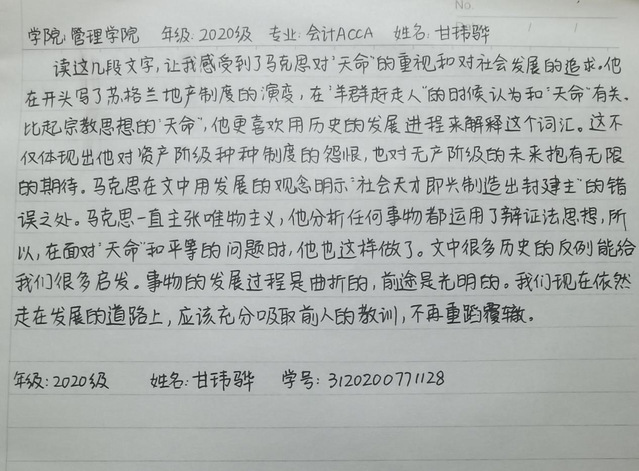 No.
学院:管理学院 年级:2020级 专业:会计ACCA 姓名:甘玮骅
读这几段文字,让我感受到了马克思对“天命”的重视和对社会发展的追求。他
在开头写了苏格兰地产制度的演变,在“羊群赶走人”的时候认为和“天命”有关。
比起宗教思想的“天命”,他更喜欢用历史的发展进程来解释这个词汇。这不
仅体现出他对资产阶级种种制度的怨恨,也对无产阶级的未来抱有无限
的期待。马克思在文中用发展的观念明示“社会天才即兴制造出封建主”的错
误之处。马克思一直主张唯物主义,他分析任何事物都运用了辩证法思想,所
以,在面对“天命”和平等的问题时,他也这样做了。文中很多历史的反例能给
我们很多启发。事物的发展过程是曲折的,前途是光明的。我们现在依然
走在发展的道路上,应该充分吸取前人的教训,不再重蹈覆辙。
年级:2020级 姓名:甘玮骅 学号:3120200771128